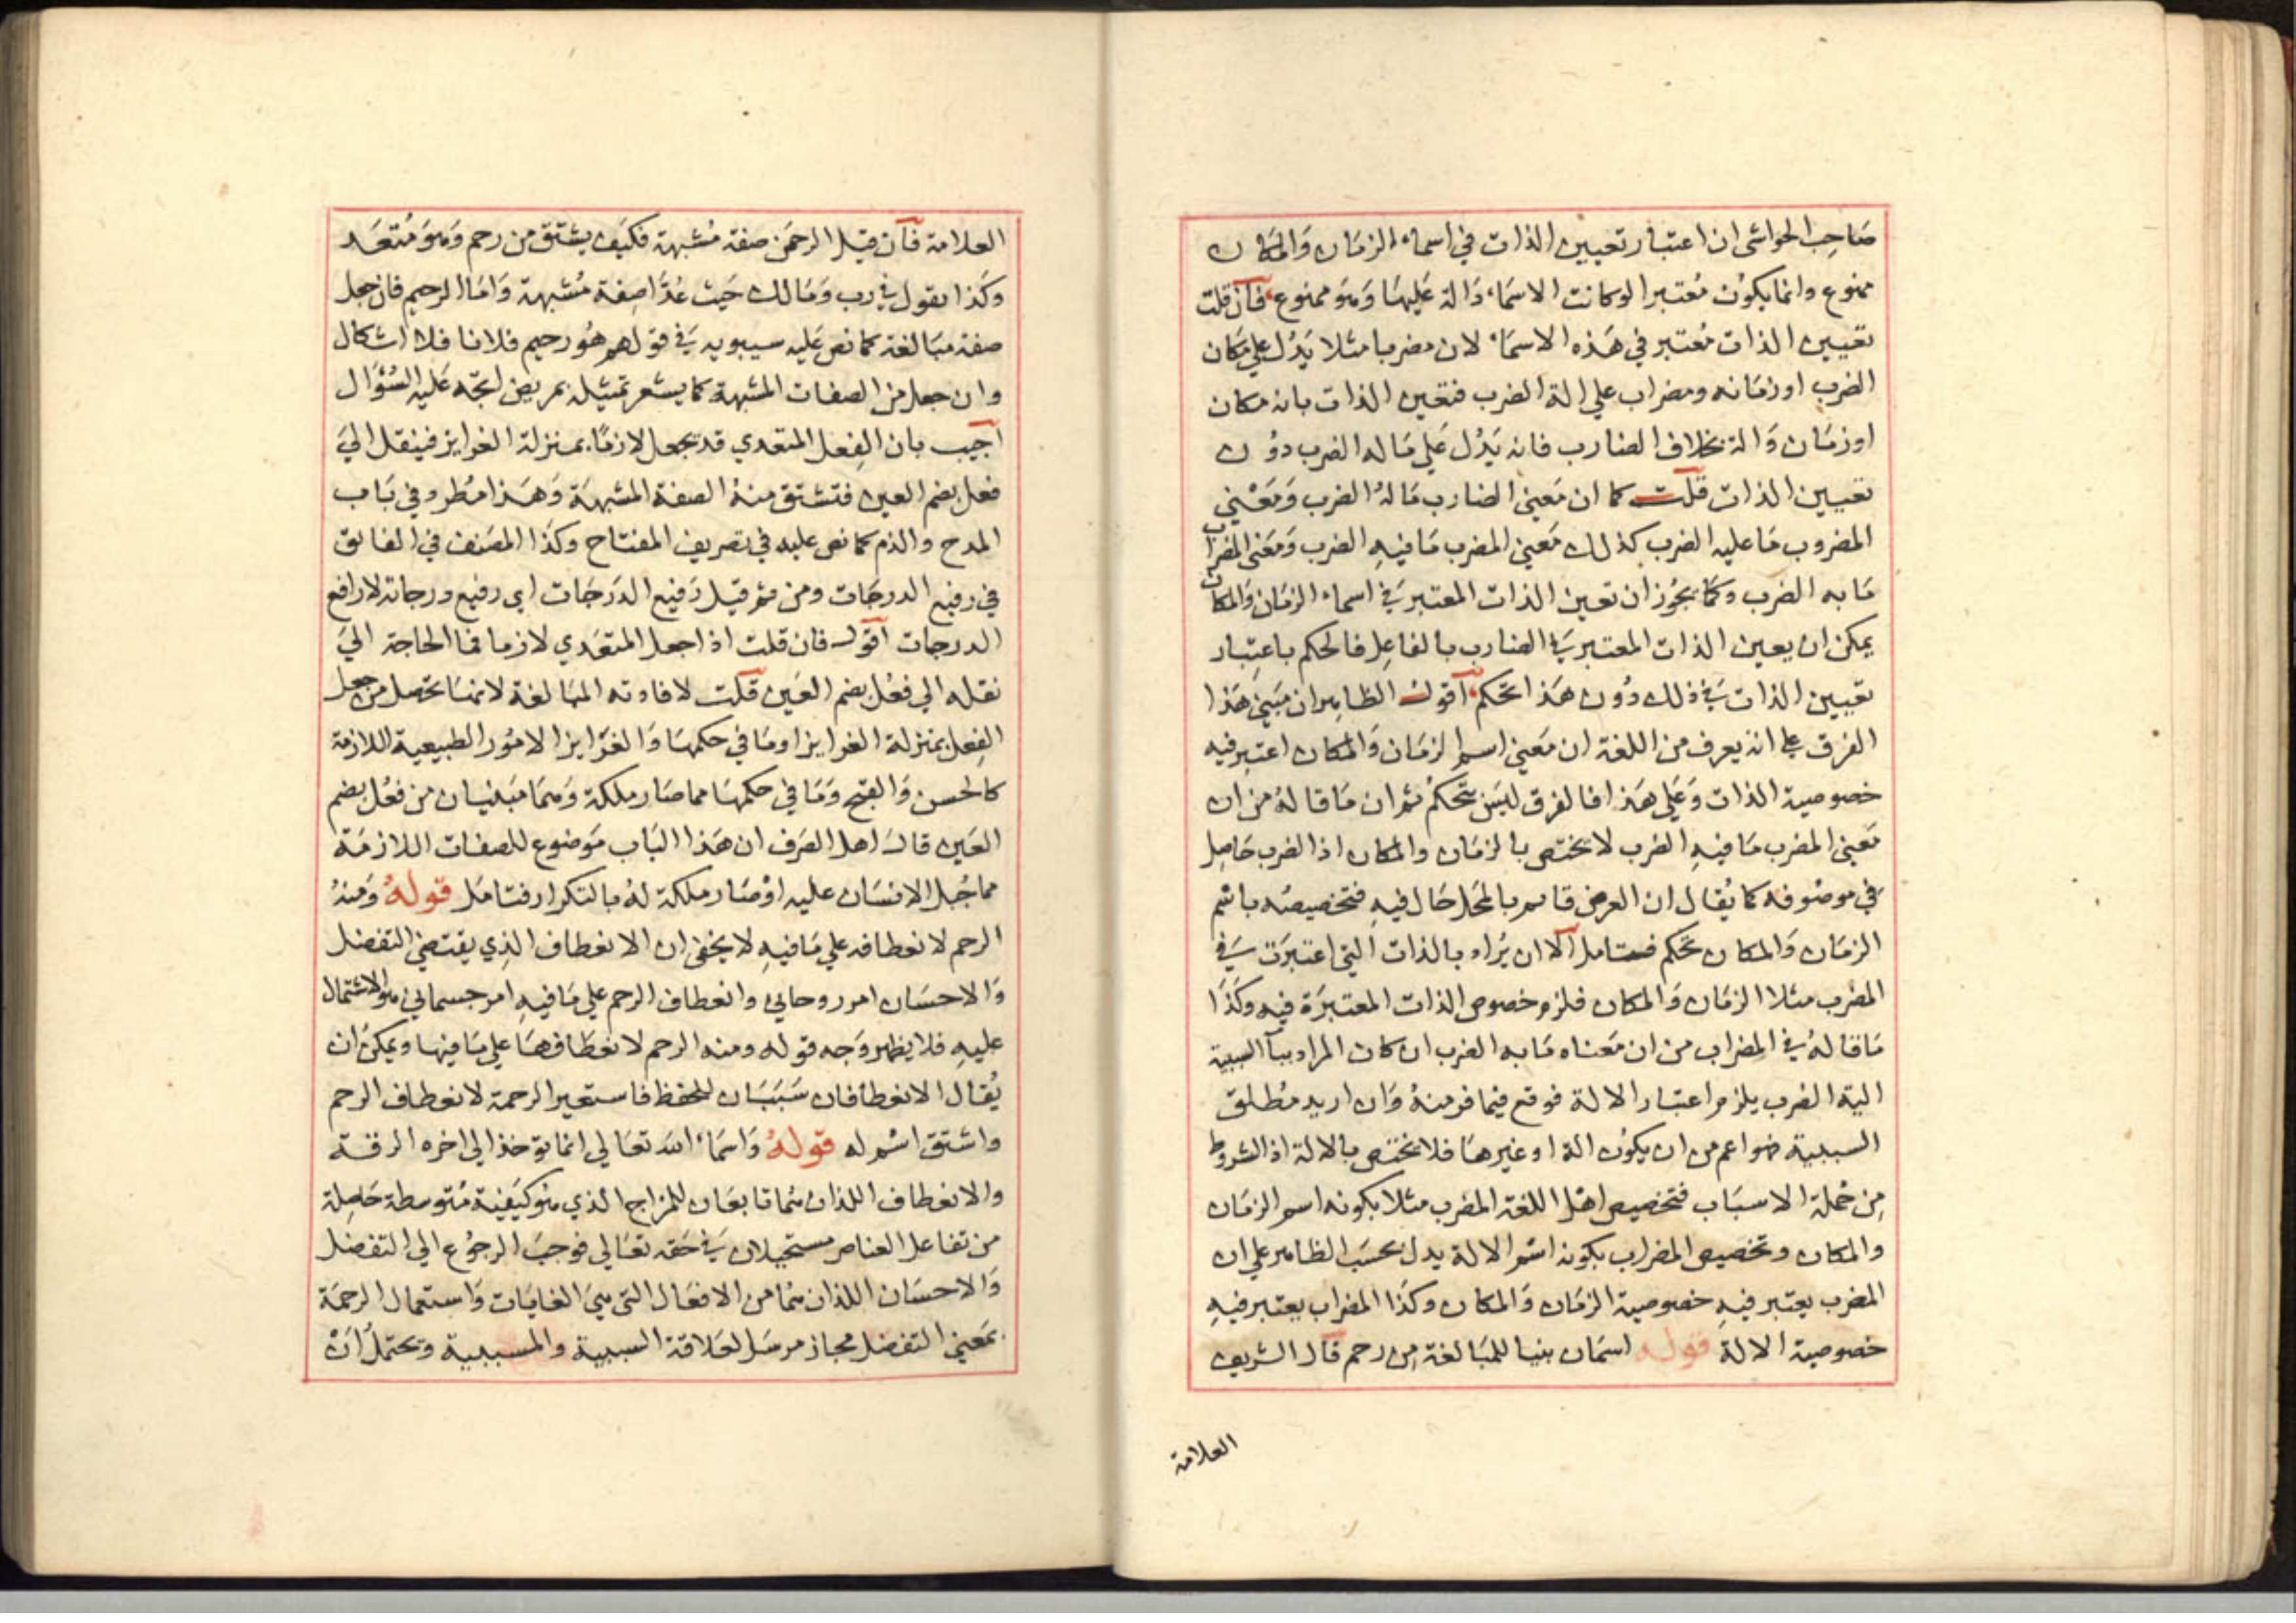 صاحب الحواشي ان اعتبار تعيين الذات في اسماء الزمان والمكان
ممنوع وانما يكون معتبرا لو كانت الاسماء دالة عليها وهو ممنوع فان قلت
تعيين الذات معتبر في هذه الاسماء لان مضربا مثلا يدل علي مكان
الضرب او زمانه ومضراب علي الة الضرب فتعين الذات بانه مكان
او زمان والة بخلاف الضارب فانه يدل علي ما له الضرب دون
تعيين الذات قلت كما ان معني الضارب ما له الضرب ومعني
المضروب ما عليه الضرب كذلك معني المضرب ما فيه الضرب ومعني المضراب
ما به الضرب وكما يجوز ان تعين الذات المعتبر في اسماء الزمان والمكان
يمكن ان يعين الذات المعتبر في الضارب بالفاعل فالحكم باعتبار
تعيين الذات في ذلك دون هذا تحكم اقول الظاهر ان مبني هذا
الفرق علي انه يعرف من اللغة ان معني اسم الزمان والمكان اعتبر فيه
خصوصية الذات وعلي هذا فالفرق ليس بتحكم ثم ان ما قاله من ان
معني المضرب ما فيه الضرب لا يختص بالزمان والمكان اذ الضرب حاصل
في موصوفه كما يقال ان العرض قايم بالمحل حال فيه فتخصيصه باسم
الزمان والمكان تحكم فتامل الا ان يراد بالذات التي اعتبرت في
المضرب مثلا الزمان والمكان فلزم خصوص الذات المعتبرة فيه وكذا
ما قاله في المضراب من ان معناه ما به الضرب ان كان المراد ببآ السببية
الية الضرب يلزم اعتبار الالة فوقع فيما فر منه وان اريد مطلق
السببية فهو اعم من ان يكون الة او غيرها فلا يختص بالالة اذ الشروط
من جملة الاسباب فتخصيص اهل اللغة المضرب مثلا بكونه اسم الزمان
والمكان وتخصيص المضراب بكونه اسم الالة يدل بحسب الظاهر علي ان
المضرب يعتبر فيه خصوصية الزمان والمكان وكذا المضراب يعتبر فيه
خصوصية الالة قوله اسمان بنيا للمبالغة من رحم قال الشريف
العلامة
العلامة فان قيل الرحمن صفة مشبهة فكيف يشتق من رحم وهو متعد
وكذا نقول في رب ومالك حيث عدا صفة مشبهة واما الرحيم فان جعل
صفة مبالغة كما نص عليه سيبويه في قولهم هو رحيم فلانا فلا اشكال
وان جعل من الصفات المشبهة كما يشعر تمثيله بمريض اتجه عليه السؤال
اجيب بان الفعل المتعدي قد يجعل لازما بمنزلة الغرايز فينقل الي
فعل بضم العين فتشتق منه الصفة المشبهة وهذا مطرد في باب
المدح والذم كما نص عليه في تصريف المفتاح وكذا المصنف في الفايق
في رفيع الدرجات ومن ثم قيل رفيع الدرجات اي رفيع درجاته لا رافع
الدرجات اقول فان قلت اذا جعل المتعدي لازما فما الحاجة الي
نقله الي فعل بضم العين قلت لافادته المبالغة لانها تحصل من جعل
الفعل بمنزلة الغرايز او ما في حكمها والغرايز الامور الطبيعية اللازمة
كالحسن والقبح وما في حكمها مما صار ملكة وهما مبنيان من فعل بضم
العين قال اهل الصرف ان هذا الباب موضوع للصفات اللازمة
مما جبل الانسان عليه او صار ملكة له بالتكرار فتامل قوله ومنه
الرحم لانعطافه علي ما فيه لا يخفي ان الانعطاف الذي يقتضي التفضل
والاحسان امر روحاني وانعطاف الرحم علي ما فيه امر جسماني هو الاشتمال
عليه فلا يظهر وجه قوله ومنه الرحم لانعطافها علي ما فيها ويمكن ان
يقال الانعطافان سببان للحفظ فاستعير الرحمة لانعطاف الرحم
واشتق اسم له قوله واسماء الله تعالي انما توخذ الي اخره الرقة
والانعطاف اللذان هما تابعان للمزاج الذي هو كيفية متوسطة حاصلة
من تفاعل العناصر مستحيلان في حقه تعالي فوجب الرجوع الي التفضل
والاحسان اللذان هما من الافعال التي هي الغايات واستعمال الرحمة
بمعني التفضل مجاز مرسل لعلاقة السببية والمسببية ويحتمل ان